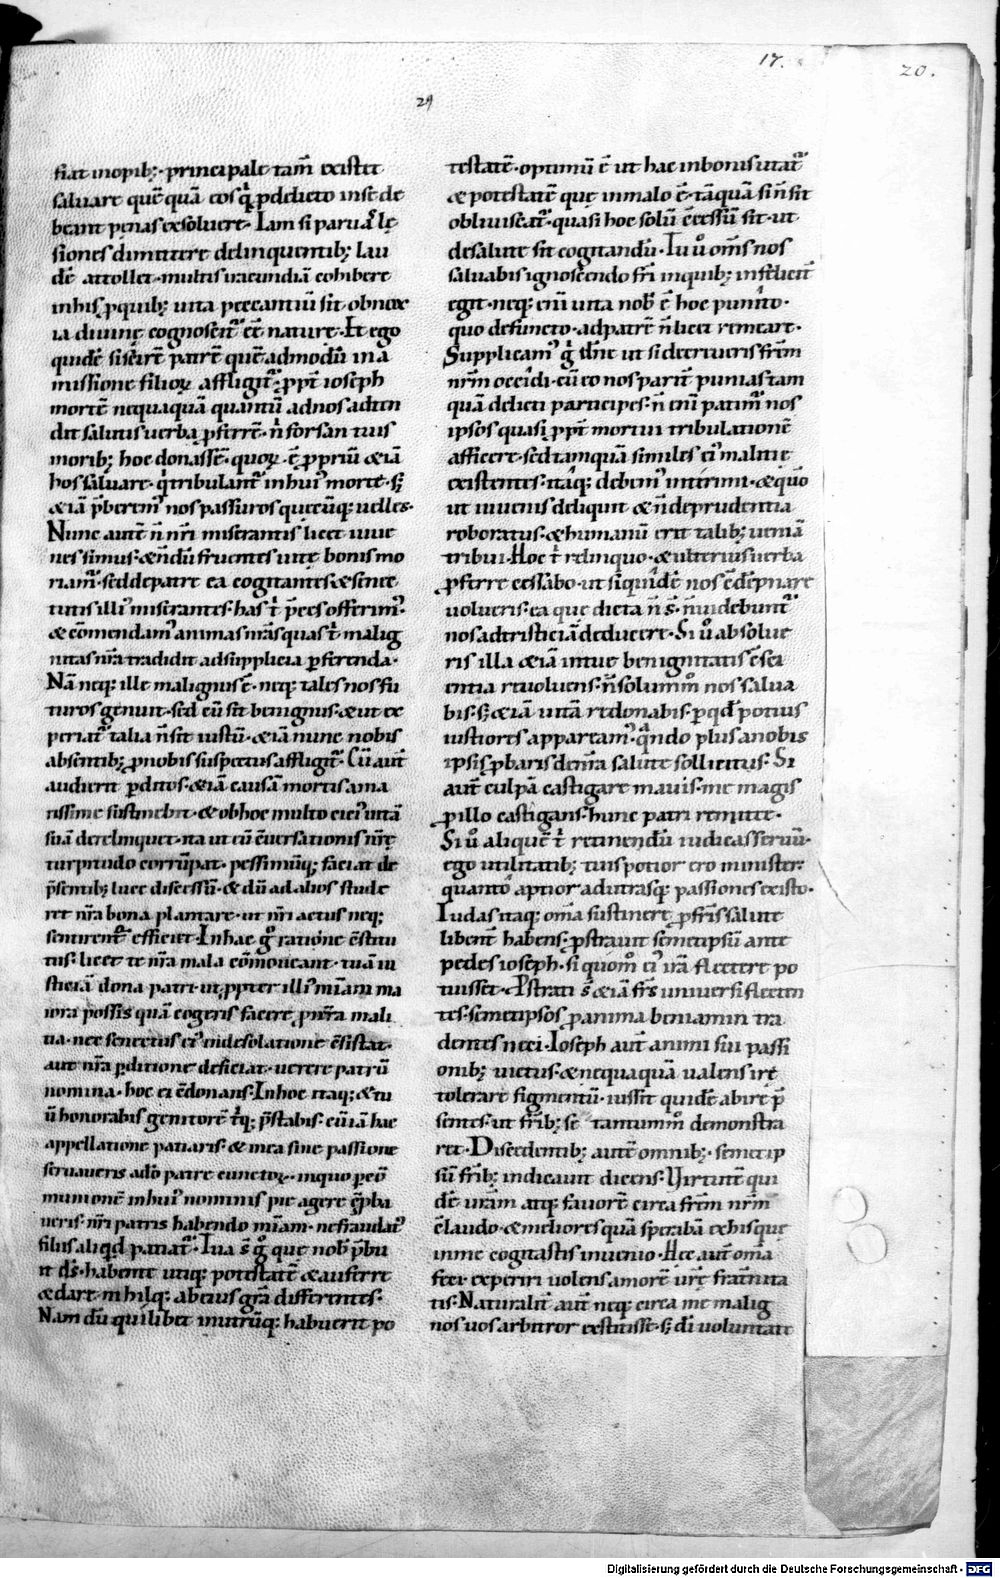 17.
20.
29
fiat inopib; · principale tam̄ existit
saluare quē quā eos q̇ p delicto inse de
beant penas exsoluere · Iam si parua lę
siones dimittere delinquentib; lau
dē attollet · multis iracundiā cohibere
in his p quib; uita peccantiū sit obnox
ia diuinę cognoscentꝰ eē naturę · Et ego
quidē si scirē patrē quē admodū in a
missione filioꝝ affligitꝰ · ꝓpt̄ ioseph
mortē nequaquā quantū ad nos adten
dit salutis uerba ꝓferrē · n̄ forsan tuis
morib; hoc donassē · quoꝝ · ē ꝓpriū & iā
hos saluare · q̇ tribulantꝰ in huiꝰ morte · s;
& iā p̄berem nos passuros quicūq; uelles ·
Nunc autē n̄ nr̄i miserantis licet iuue
nes simus · & n̄dū fruentes uitę bonis mo
riamꝰ · sed de patre ea cogitantes & senec
tutis illiꝰ miserantes · has t̄ p̄ces offerimꝰ ·
& cōmendamꝰ animas nr̄as quas t̄ malig
nitas nr̄a tradidit ad supplicia ꝓferenda ·
Nā neq; ille malignus ē · neq; tales nos fu
turos genuit · sed cū sit benignus · & ut ex
periatꝰ talia n̄ sit iustū · & iā nunc nobis
absentib; ꝓ nobis suspectus affligitꝰ · Cū aut̄
audierit ꝑditos · & iā causā mortis ama
rissime sustinebit · & ob hoc multo eiciꝰ uitā
suā derelinquet · ita ut cū ēuersationis nr̄ę
turpitudo corrūpat · pessimūq; faciat de
p̄sentib; luce discessū · & dū ad alios stude
ret nr̄a bona plantare · ut nr̄i actus neq;
sentirentꝰ efficiet · In hac g° ratione ēstitu
tus · licet te nr̄a mala cōmoueant · tuā iu
sticiā dona patri · ut ꝓpter illiꝰ mīam ma
iora possis quā cogeris facere ꝓ nr̄a mali
tia · nec senectus eiꝰ in desolatione ēsistat ·
aut nr̄a ꝑditione deficiat · uerere patrū
nomina · hoc ei ēdonans · In hoc itaq; & tu
ū honorabis genitorē tiq; p̄stabis · cū iā hac
appellatione patiaris · & mea sine passione
seruaueris a dō patre cunctoꝝ · in quo ꝑ cō
munionē in huiꝰ nominis pie agere cp̄ba
ueris · nr̄i patris habendo mīam · ne fraudatꝰ
filiis aliqd patiatꝰ · Tua s̄ g° que nob̄ p̄bu
it dš · habente utiq; potestatē & auferre
& dare · in hilq; ab eius gr̄a differentes ·
Nam dū quilibet in utrūq; habuerit po
testatē · optimū ē ut hac in bonis utatꝰ
& potestatē que in malo ē · tāquā si n̄ sit
obliuiscatꝰ · quasi hoc solū cessū sit · ut
de salute sit cogitandū · Tu ū om̄s nos
saluabis ignoscendo fr̄i in quib; infelicit̄
egit · neq; eni uita nob̄ ē hoc punito ·
quo defuncto · ad patrē n̄ licet remeare ·
Supplicamꝰ g̣ tdn̄e ut si decreueris fr̄em
nr̄m occidi · cū eo nos parit̄ punias tam
quā delicti participes · n̄ eni patimꝰ nos
ipsos quasi ꝓpt̄ mortui tribulationē
afficere · sed tamquā similes eiꝰ malitię
existentes · itaq; debemꝰ interimi · & quō
ut iuuenis deliquit & n̄ de prudentia
roboratus · & humanū erit talib; ueniā
tribui · Hoc t̄ relinquo · & ulterius uerba
ꝓferre cessabo · ut siquidē nos ēdēpnare
uolueris · ea que dicta n̄ s̄ · n̄ uidebuntꝰ
nos ad tristiciā deducere · Si ū absolue
ris illa & iā intue benignitatis ēsci
entia reuoluens · n̄ solummō nos salua
bis · s; & iā uitā redonabis · ꝑ qd potius
iustiores appareamꝰ · q̄ndo plus a nobis
ipsis ꝓbaris de nr̄a salute sollicitus · Si
aut̄ culpā castigare mauis · me magis
ꝓ illo castigans · hunc patri remitte ·
Si ū aliquē t̄ retinendū iudicas seruū ·
ego utilitatib; tuis potior ero minister ·
quanto aptior ad utrasq; passiones existo ·
Iudas itaq; om̄ia sustinere ꝓ fr̄is salute
libent̄ habens · ꝓstrauit semetipsū ante
pedes ioseph · si quom̄o eiꝰ irā flectere po
tuisset · Pstrati s̄ & iā fr̄s uniuersi flecten
tes · semetipsos ꝓ anima beniamin tra
dentes neci · Ioseph aut̄ animi sui passi
onib; uictus · & nequaquā ualens irę
tolerare figmentū · iussit quidē abire p̄
sentes · ut fr̄ib; se tantummō demonstra
ret · Discedentib; autē omnib; · semetip
sū fr̄ib; indicauit dicens · Virtutē qui
dē ur̄am atq; fauorē circa fr̄em nr̄m
ēlaudo · & meliores quā sperabā ex his que
in me cogitastis inuenio · Hęc aut̄ om̄ia
feci experiri uolens amorē ur̄ę fr̄aternita
tis · Naturalit̄ aut̄ neq; circa me malig
nos uos arbitror extitisse · s; dī uoluntati
Digitalisierung gefördert durch die Deutsche Forschungsgemeinschaft - DFG